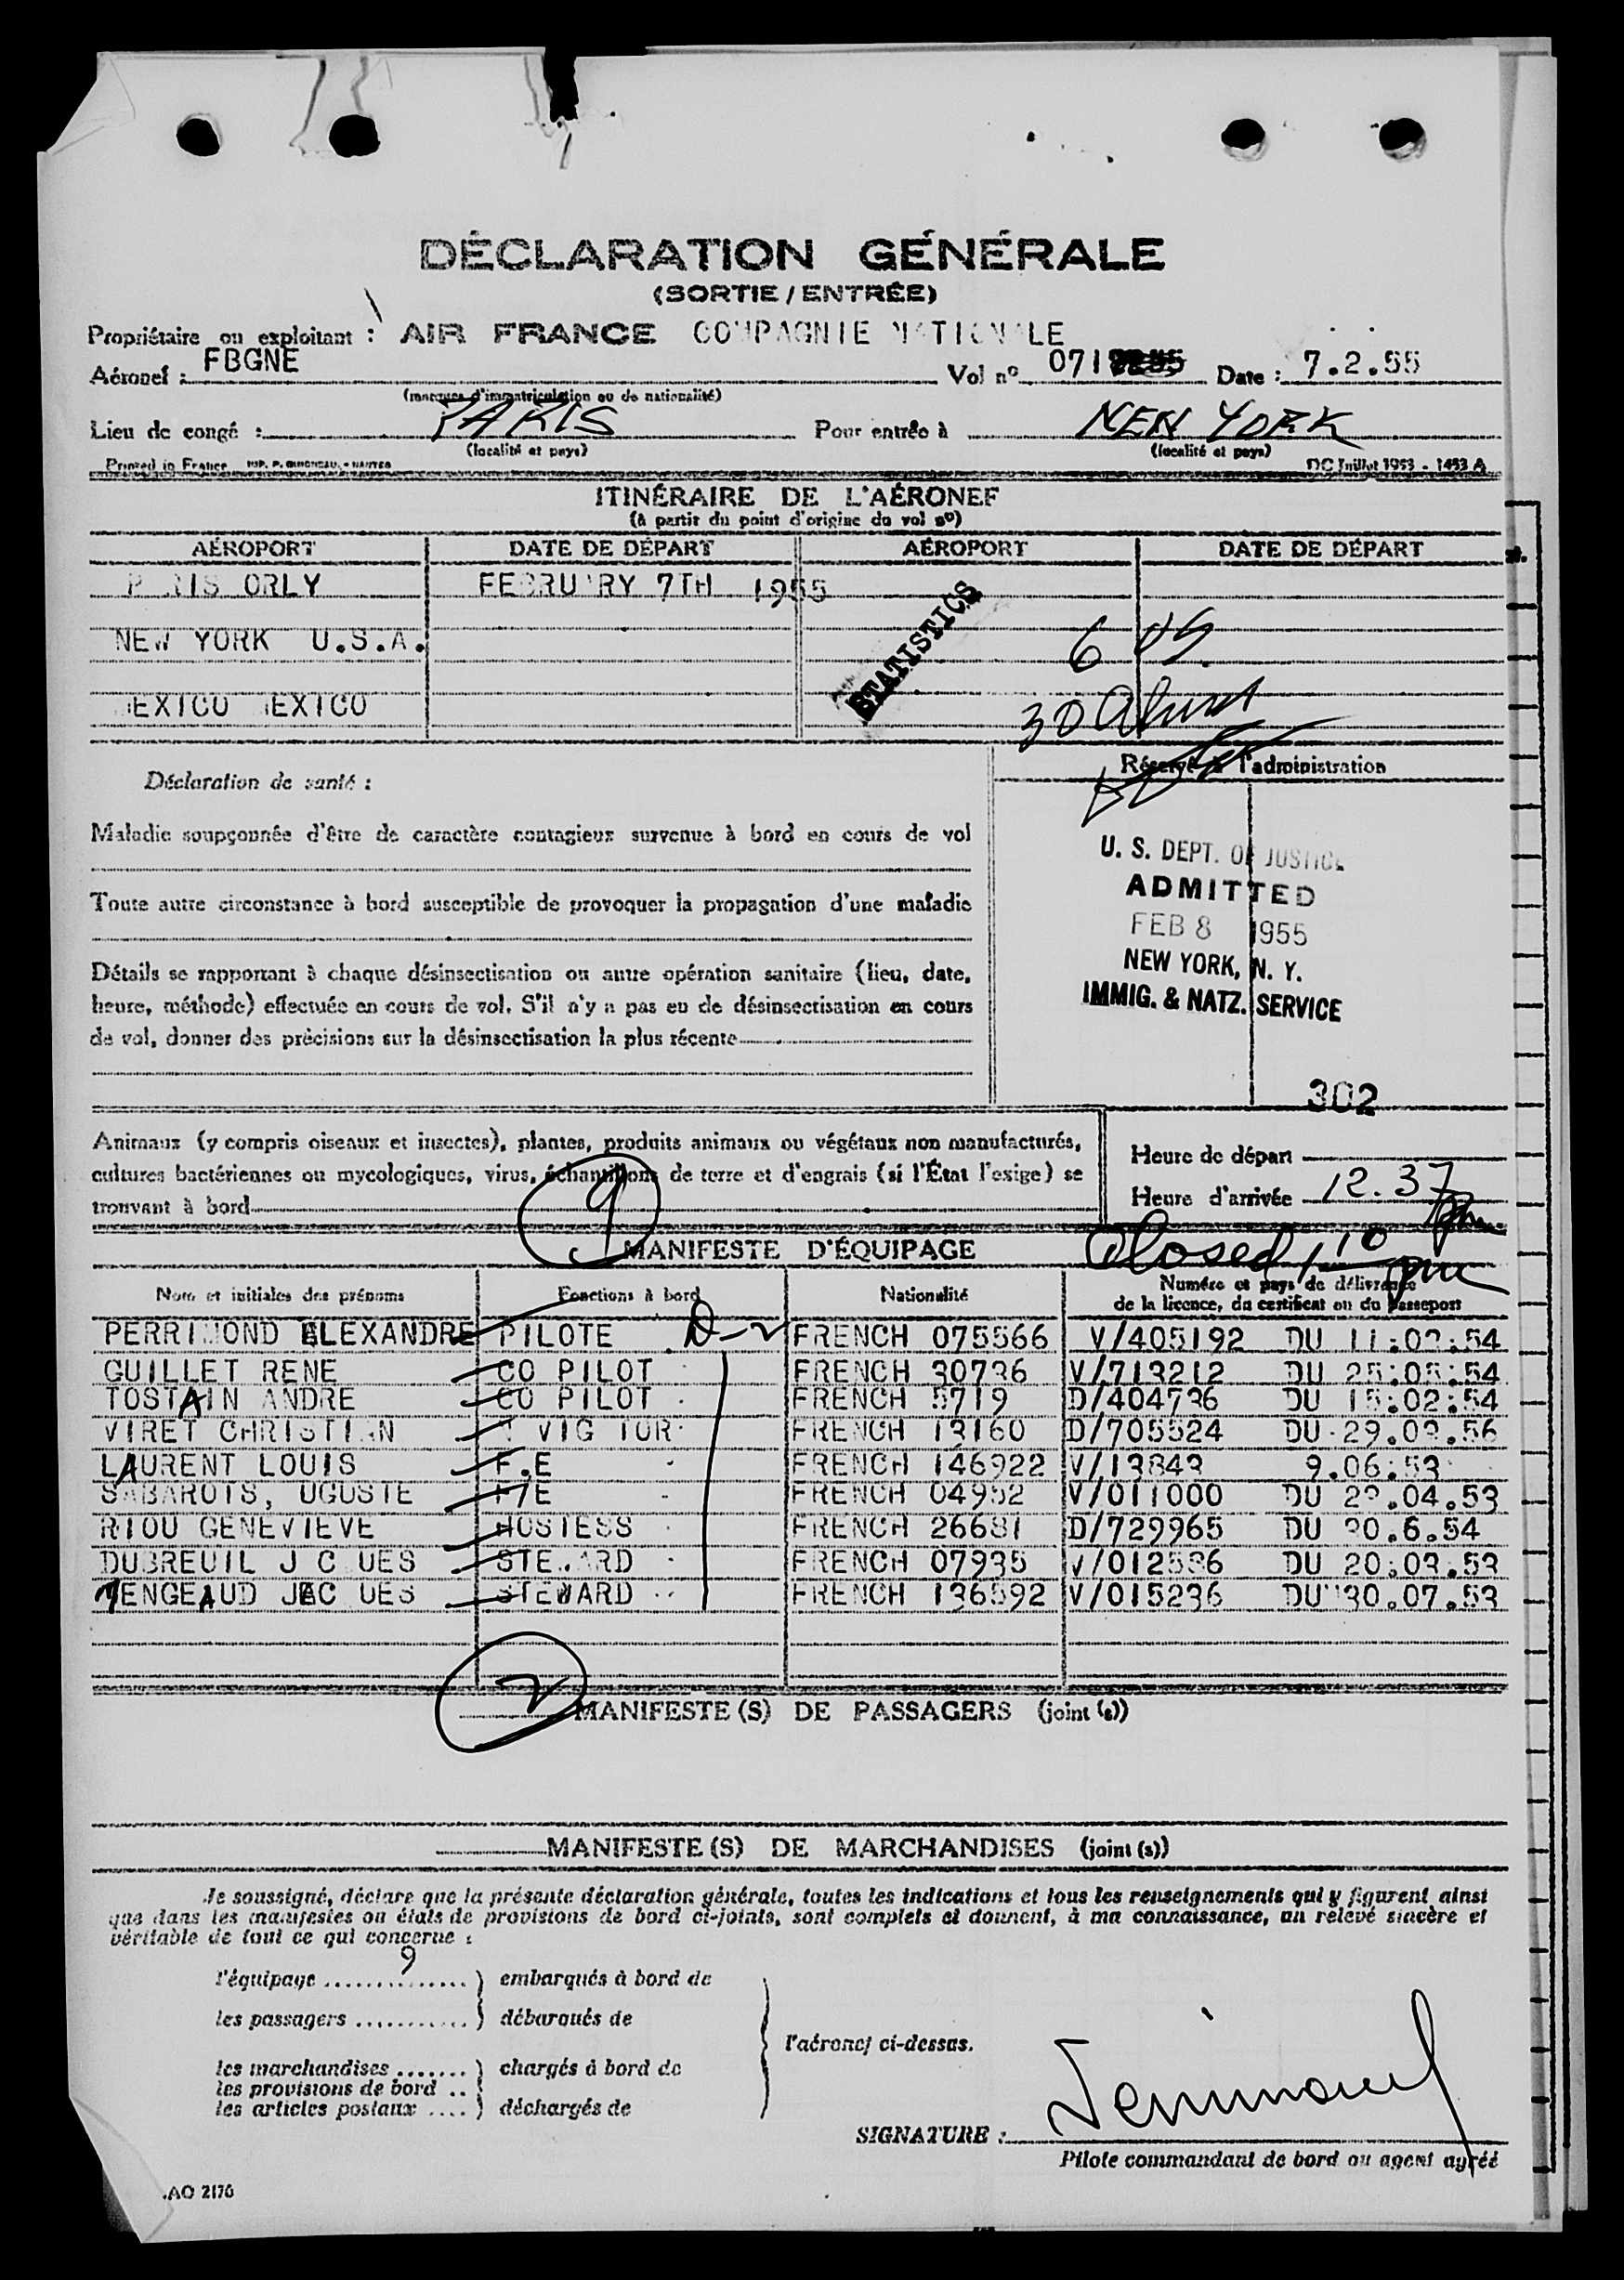 DÉCLARATION GÉNÉRALE
(SORTIE / ENTRÉE)
Propriétaire ou exploitant : AIR FRANCE COMPAGNIE NATIONALE
Aéronef : FBGNE Vol nº 071 Date : 7.2.55
(marques d'immatriculation ou de nationalité)
Lieu de congé : PARIS Pour entrée à NEW YORK
(localité et pays) (localité et pays)
Printed in France DC Juillet 1953 - 1453 A
ITINÉRAIRE DE L'AÉRONEF
(à partir du point d'origine du vol nº)
AÉROPORT DATE DE DÉPART AÉROPORT DATE DE DÉPART
P RIS ORLY FEBRU RY 7TH 1955
STATISTICS
NEW YORK U.S.A. 6 US
MEXICO MEXICO 30
Déclaration de santé : Réservé à l'administration
Maladie soupçonnée d'être de caractère contagieux survenue à bord en cours de vol
U. S. DEPT. OF JUSTICE
ADMITTED
Toute autre circonstance à bord susceptible de provoquer la propagation d'une maladie
FEB 8 1955
NEW YORK, N. Y.
IMMIG. & NATZ. SERVICE
Détails se rapportant à chaque désinsectisation ou autre opération sanitaire (lieu, date,
heure, méthode) effectuée en cours de vol. S'il n'y a pas eu de désinsectisation en cours
de vol, donner des précisions sur la désinsectisation la plus récente
302
Animaux (y compris oiseaux et insectes), plantes, produits animaux ou végétaux non manufacturés,
cultures bactériennes ou mycologiques, virus, échantillons de terre et d'engrais (si l'État l'exige) se
trouvant à bord
Heure de départ
Heure d'arrivée 12.37 pm
9 MANIFESTE D'ÉQUIPAGE Closed 1 10 pm
Nom et initiales des prénoms Fonctions à bord Nationalité Numéro et pays de délivrance
de la licence, du certificat ou du passeport
PERRIMOND ALEXANDRE PILOTE D-2 FRENCH 075566 V/405192 DU 11:02:54
GUILLET RENE CO PILOT FRENCH 30736 V/713212 DU 25:05:54
TOSTAIN ANDRE CO PILOT FRENCH 5719 D/404736 DU 15:02:54
VIRET CHRISTIAN VIG TOR FRENCH 13160 D/705524 DU 29.03.56
LAURENT LOUIS F.E FRENCH 146922 V/13843 9.06.53
SABAROTS, UGUSTE F/E FRENCH 04952 V/011000 DU 23.04.53
RIOU GENEVIEVE HOSTESS FRENCH 26681 D/729965 DU 30.6.54
DUBREUIL J C UES STEWARD FRENCH 07935 V/012536 DU 20.03.53
MENGEAUD JAC UES STEWARD FRENCH 136592 V/015236 DU 30.07.53
2 MANIFESTE (S) DE PASSAGERS (joint (s))
MANIFESTE (S) DE MARCHANDISES (joint (s))
Je soussigné, déclare que la présente déclaration générale, toutes les indications et tous les renseignements qui y figurent ainsi
que dans les manifestes ou états de provisions de bord ci-joints, sont complets et donnent, à ma connaissance, un relevé sincère et
véritable de tout ce qui concerne :
l'équipage 9 embarqués à bord de
les passagers débarqués de
l'aéronef ci-dessus.
les marchandises chargés à bord de
les provisions de bord
les articles postaux déchargés de
SIGNATURE : Perrimond
Pilote commandant de bord ou agent agréé
AO 2176